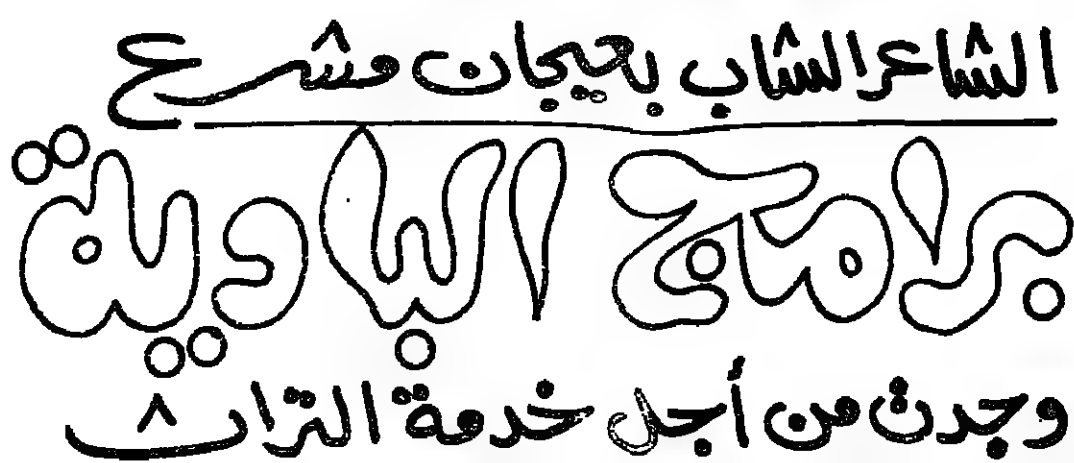 الشاعر الشاب بعيجان ومشرع
برامج البادية
وجدت من أجل خدمة التراث